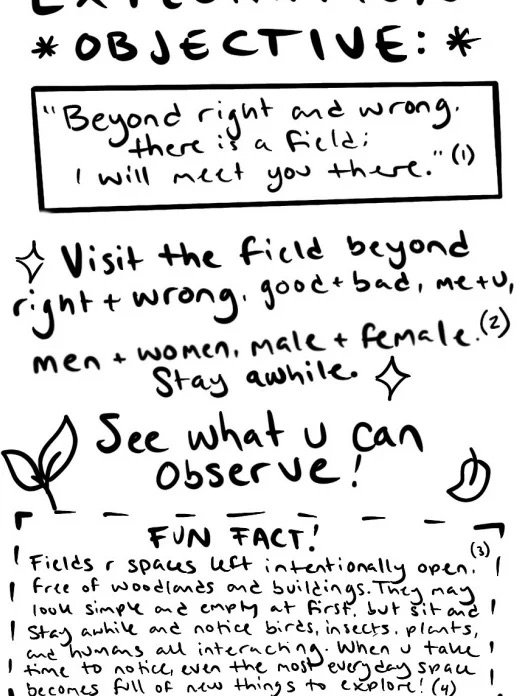 * OBJECTIVE: *
"Beyond right and wrong.
there is a field;
I will meet you there." (1)
Visit the field beyond
right + wrong. good + bad, me + u,
men + women, male + female. (2)
Stay awhile.
See what u can
observe!
FUN FACT!
Fields r spaces left intentionally open. (3)
free of woodlands and buildings. They may
look simple and empty at first, but sit and
stay awhile and notice birds, insects, plants,
and humans all interacting. When u take
time to notice, even the most everyday space
becomes full of new things to explore! (4)